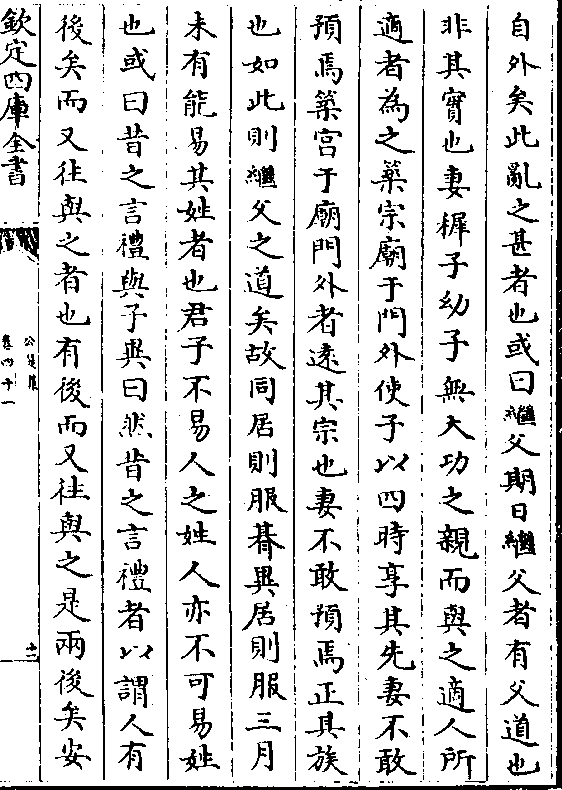 自外矣此亂之甚者也或曰繼父期曰繼父者有父道也
非其實也妻穉子幼子無大功之親而與之適人所
適者為之築宗廟于門外使子以四時享其先妻不敢
預焉築宫于廟門外者逺其宗也妻不敢預焉正其族
也如此則繼父之道矣故同居則服朞異居則服三月
未有能易其姓者也君子不易人之姓人亦不可易姓
也或曰昔之言禮與子異曰然昔之言禮者以謂人有
後矣而又往與之者也有後而又往與之是兩後矣安
欽定四庫全書
公是集
卷四十一
十二